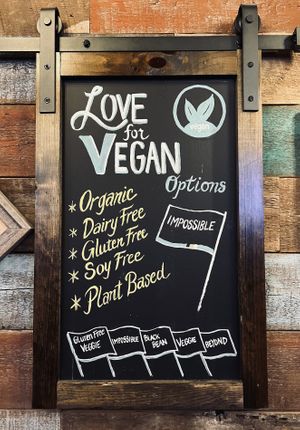 LOVE
for
VEGAN
vegan
Options
* Organic
* Dairy Free
* Gluten Free
* Soy Free
* Plant Based
IMPOSSIBLE
Gluten Free
VEGGIE
IMPOSSIBLE
BLACK
BEAN
VEGGIE
BEYOND